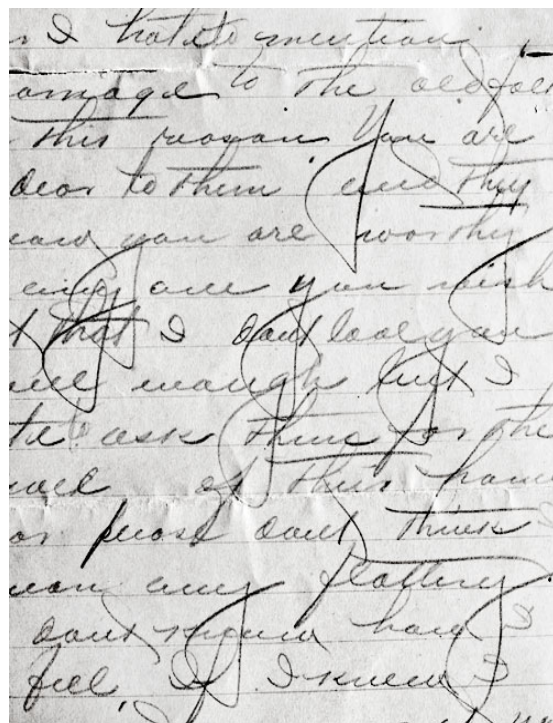 I hate to mention
to the old folk
this reason You are
dear to them and they
you are worthy
any one you wish
that I dont love you
well enough but I
ask them for the
of their home
please dont think
any flattery
dont know how I
feel, If I knew I